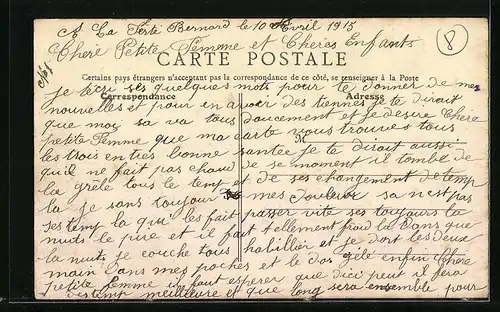 A La Ferté Bernard le 10 Avril 1915
Chere Petite Femme et Cheres Enfants
8
CARTE POSTALE
Certains pays étrangers n'acceptant pas la correspondance de ce côté, se renseigner à la Poste
Correspondance
Adresse
je tecri ses quelques mots pour te donner de mes
nouvelles et pour en avoir des tiennes je te dirait
que moi sa va tous doucement et je desire Chere
petite Femme que ma carte vous trouves tous
M
les trois en tres bonne santee je te dirait aussi
qu'il ne fait pas chaud de se moment il tombe de
la grêle tous le temp et de ses changement de temp
la je sans toujour mes douleur sa n'est pas
ses temp la qui les fait passer vite ses toujours la
nuits le pire et il fait tellement froid la Dans que
la nuit je couche tous habiller et je dort les deux
main Dans mes poches et le dos gelé enfin Chere
petite femme il faut esperer que dici peut il fera
des temp meilleure et que long sera ensemble pour